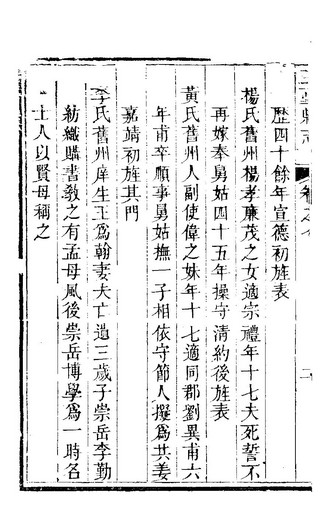 歷四十餘年宣德初旌表
楊氏舊州楊孝廉茂之女適宗禮年十七夫死誓不
再嫁奉舅姑四十五年操守清約後旌表
黃氏舊州人副使偉之妹年十七適同郡劉異甫六
年甫卒順事舅姑撫一子相依守節人擬為共姜
嘉靖初旌其門
李氏舊州庠生王為翰妻夫亡遺三歲子崇岳李勤
紡織購書教之有孟母風後崇岳博學為一時名
士人以賢母稱之